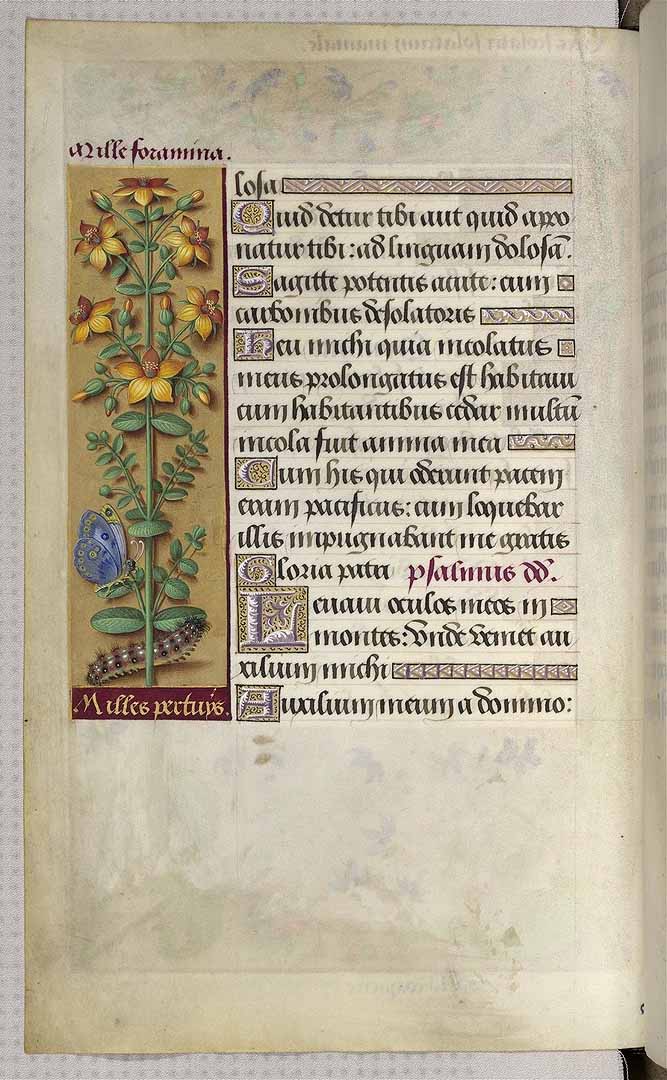 Mille foramina.
losa
Quid detur tibi aut quid appo
natur tibi: ad linguam dolosā.
Sagitte potentis acute: cum
carbonibus desolatoriis
Heu michi quia incolatus
meus prolongatus est habitaui
cum habitantibus cedar multū
incola fuit anima mea
Cum his qui oderunt pacem
eram pacificus: cum loquebar
illis impugnabant me gratis
Gloria patri psalmus dd.
Leuaui oculos meos in
montes: Vnde veniet au
xilium michi
Auxilium meum a domino:
Milles pertuys.